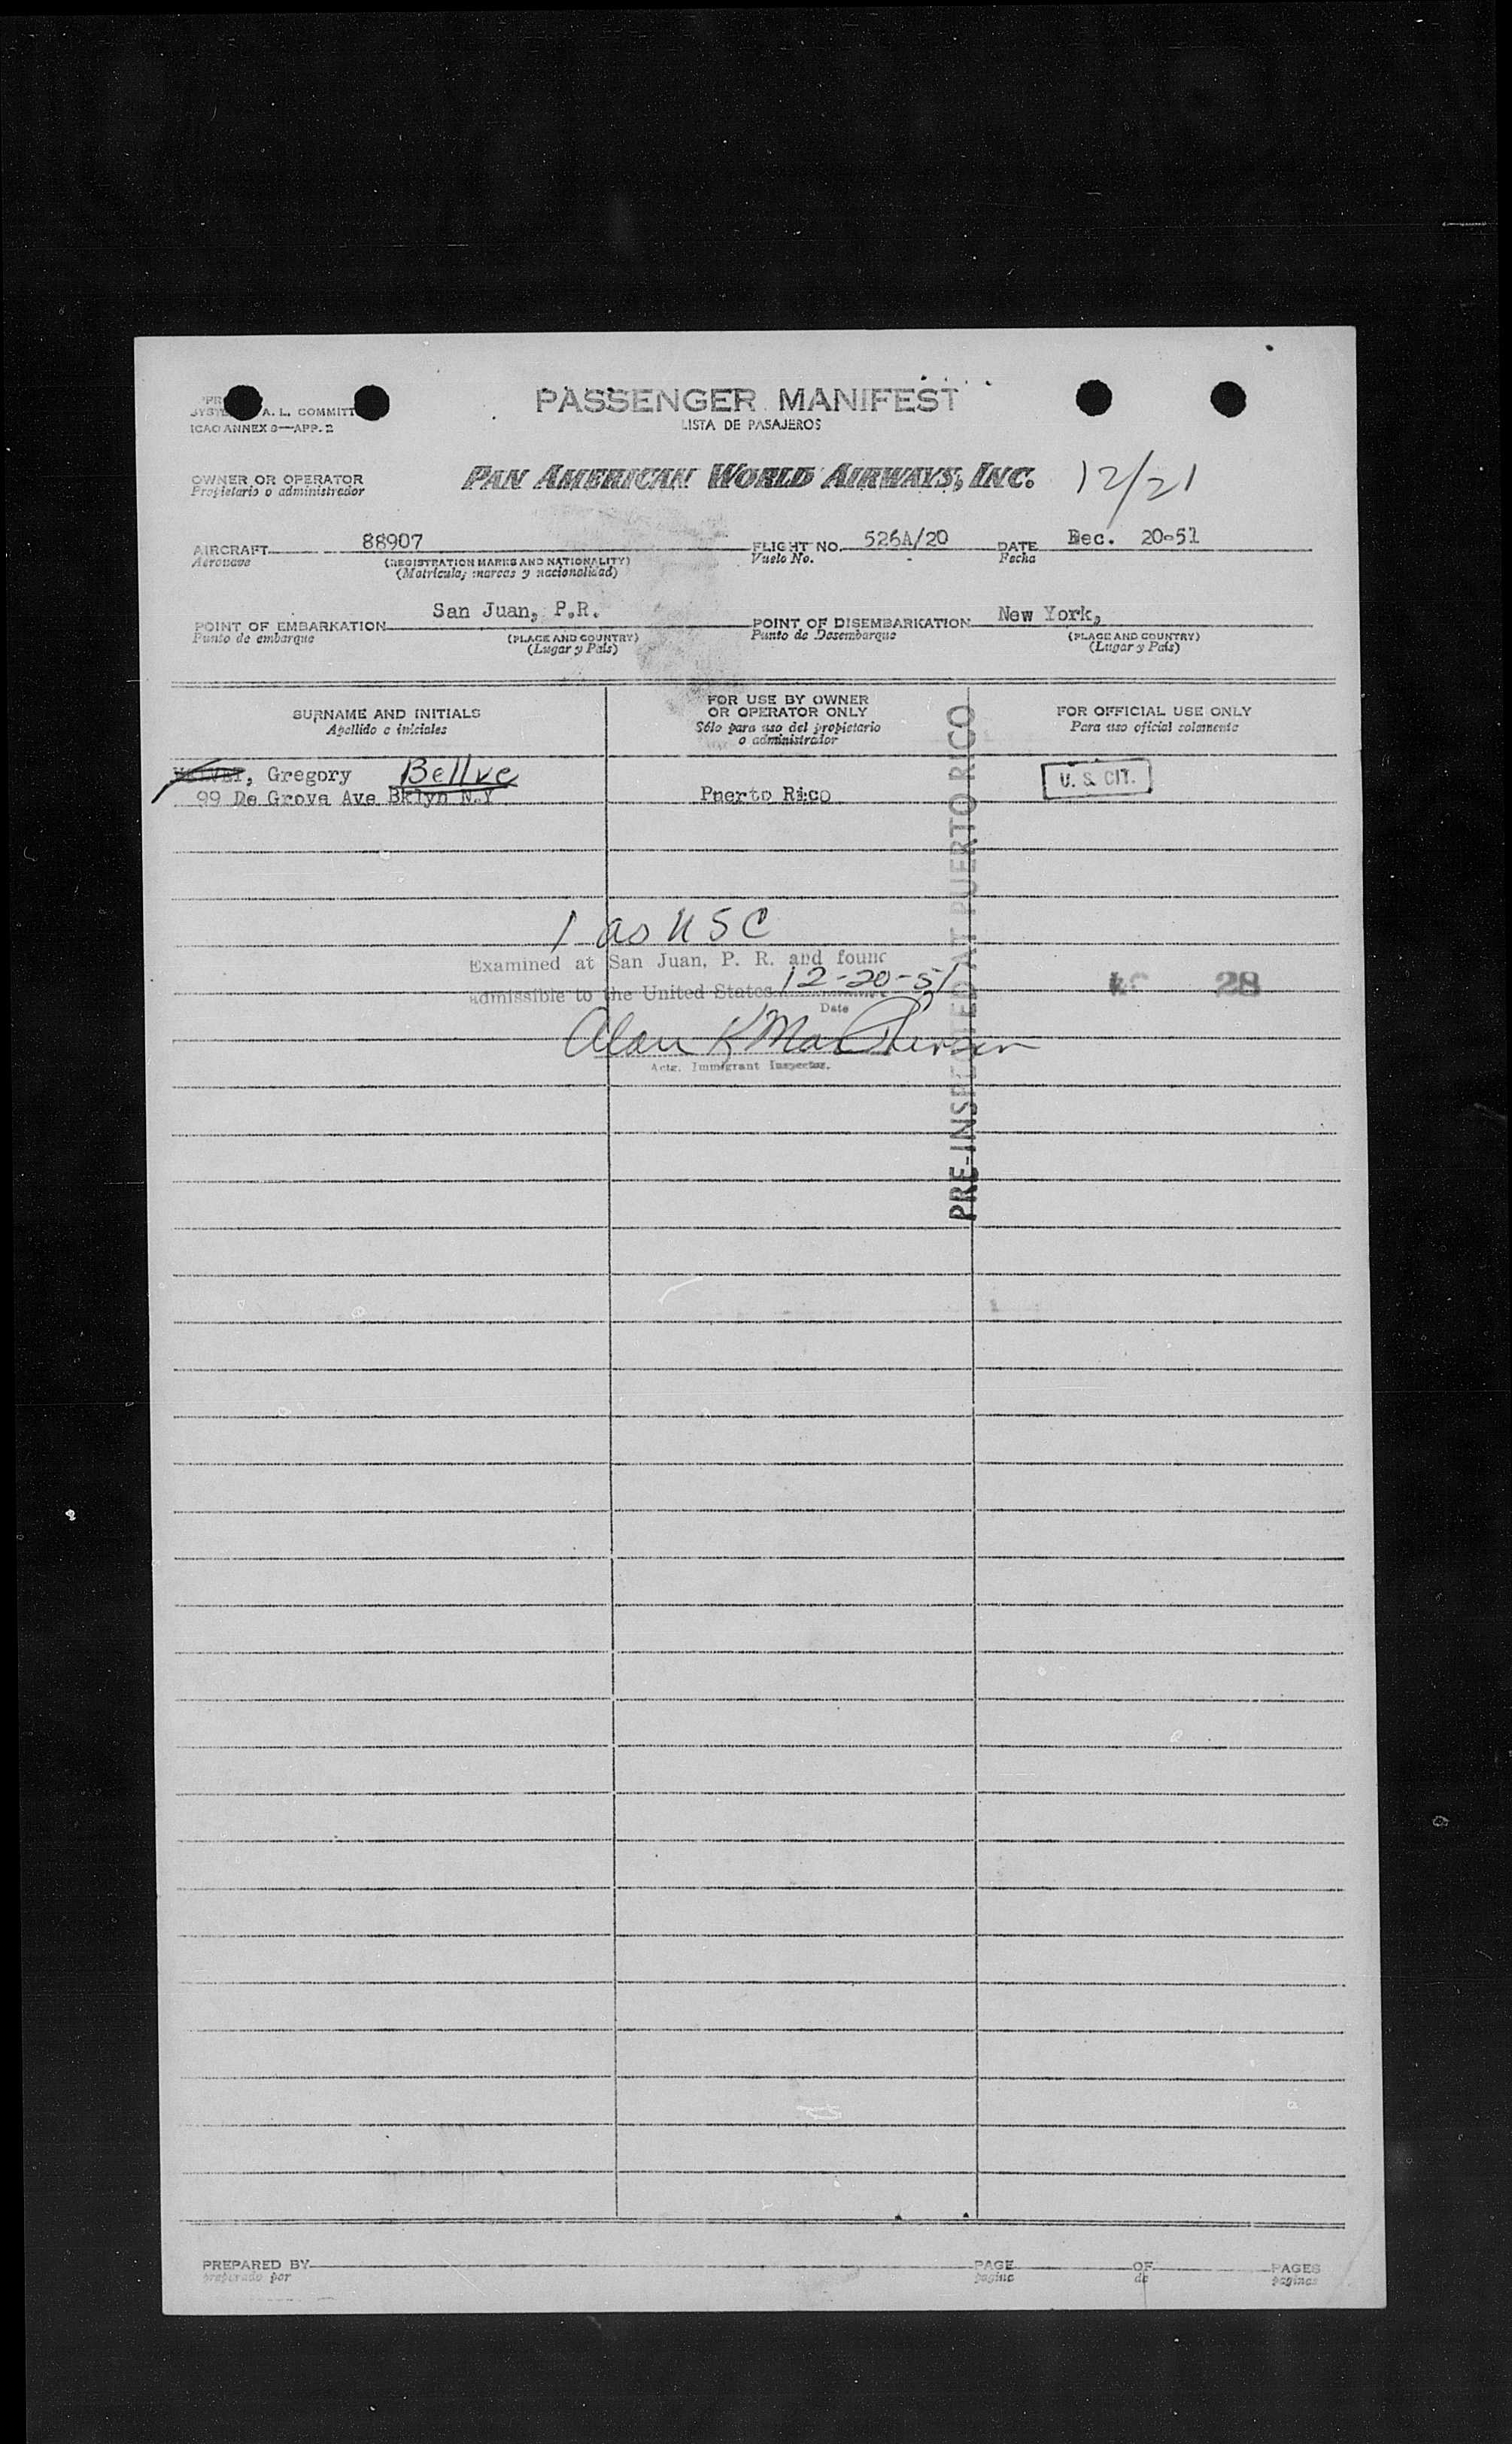 PASSENGER MANIFEST
LISTA DE PASAJEROS
A. L. COMMITT
ICAO ANNEX 9—APP. 2
OWNER OR OPERATOR
Propietario o administrador
PAN AMERICAN WORLD AIRWAYS, INC.
12/21
AIRCRAFT 88907 FLIGHT NO. 526A/20 DATE Dec. 20-51
Aeronave (REGISTRATION MARKS AND NATIONALITY) Vuelo No. Fecha
(Matricula, marcas y nacionalidad)
POINT OF EMBARKATION San Juan, P.R. POINT OF DISEMBARKATION New York,
Punto de embarque (PLACE AND COUNTRY) Punto de Desembarque (PLACE AND COUNTRY)
(Lugar y País) (Lugar y País)
SURNAME AND INITIALS
Apellido e iniciales
FOR USE BY OWNER
OR OPERATOR ONLY
Sólo para uso del propietario
o administrador
FOR OFFICIAL USE ONLY
Para uso oficial solamente
, Gregory Bellve
99 De Grova Ave Bklyn N.Y Puerto Rico
U. S. CIT.
PRE-INSPECTED AT PUERTO RICO
1 as USC
Examined at San Juan, P. R. and found
admissible to the United States 12-20-51
Date
28
Alan K MacPherson
Actg. Immigrant Inspector.
PREPARED BY PAGE OF PAGES
preparado por pagina de paginas